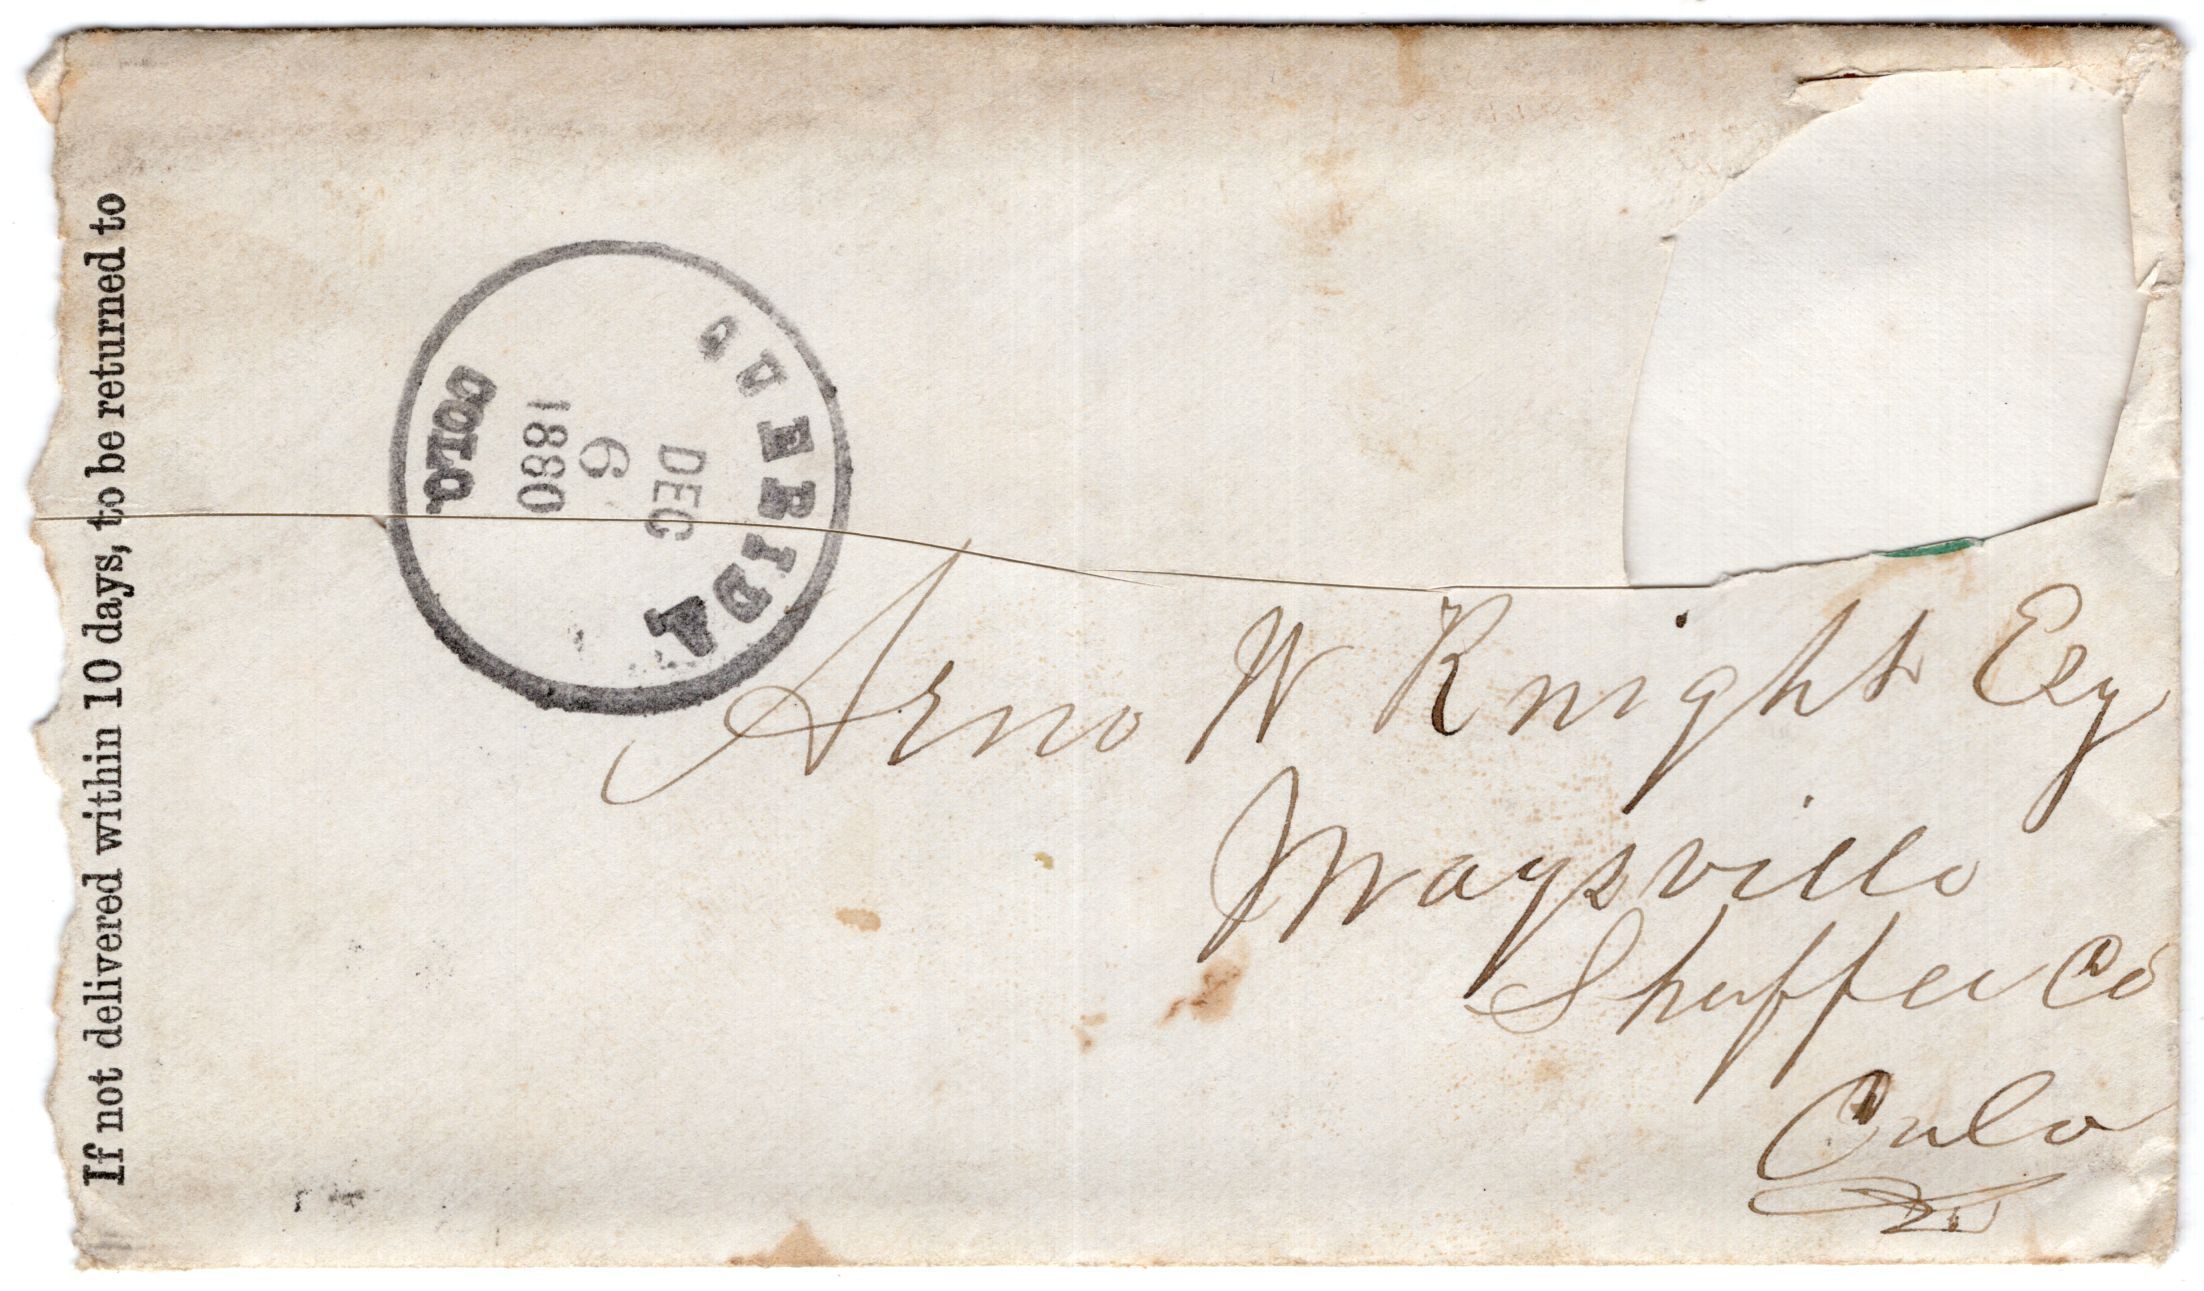 If not delivered within 10 days, to be returned to
QUERIDA
DEC
6
1880
COLO.
Arno W Knight Esq
Maysville
Shaffer Co
Colo